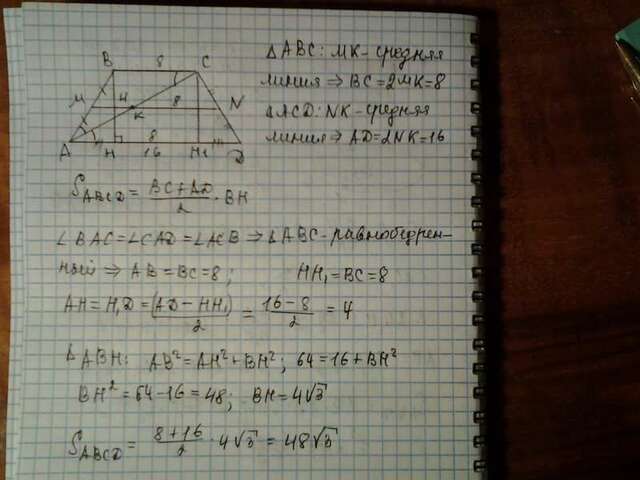 B 8 C
M 4 8 N
K
A H 8 H₁ D
16
ΔABC: MK - средняя
линия ⇒ BC = 2MK = 8
ΔACD: NK - средняя
линия ⇒ AD = 2NK = 16
S_ABCD = (BC + AD)/2 · BH
∠BAC = ∠CAD = ∠ACB ⇒ ΔABC - равнобедрен-
ный ⇒ AB = BC = 8; HH₁ = BC = 8
AH = H₁D = (AD - HH₁)/2 = (16 - 8)/2 = 4
ΔABH: AB² = AH² + BH²; 64 = 16 + BH²
BH² = 64 - 16 = 48; BH = 4√3
S_ABCD = (8 + 16)/2 · 4√3 = 48√3